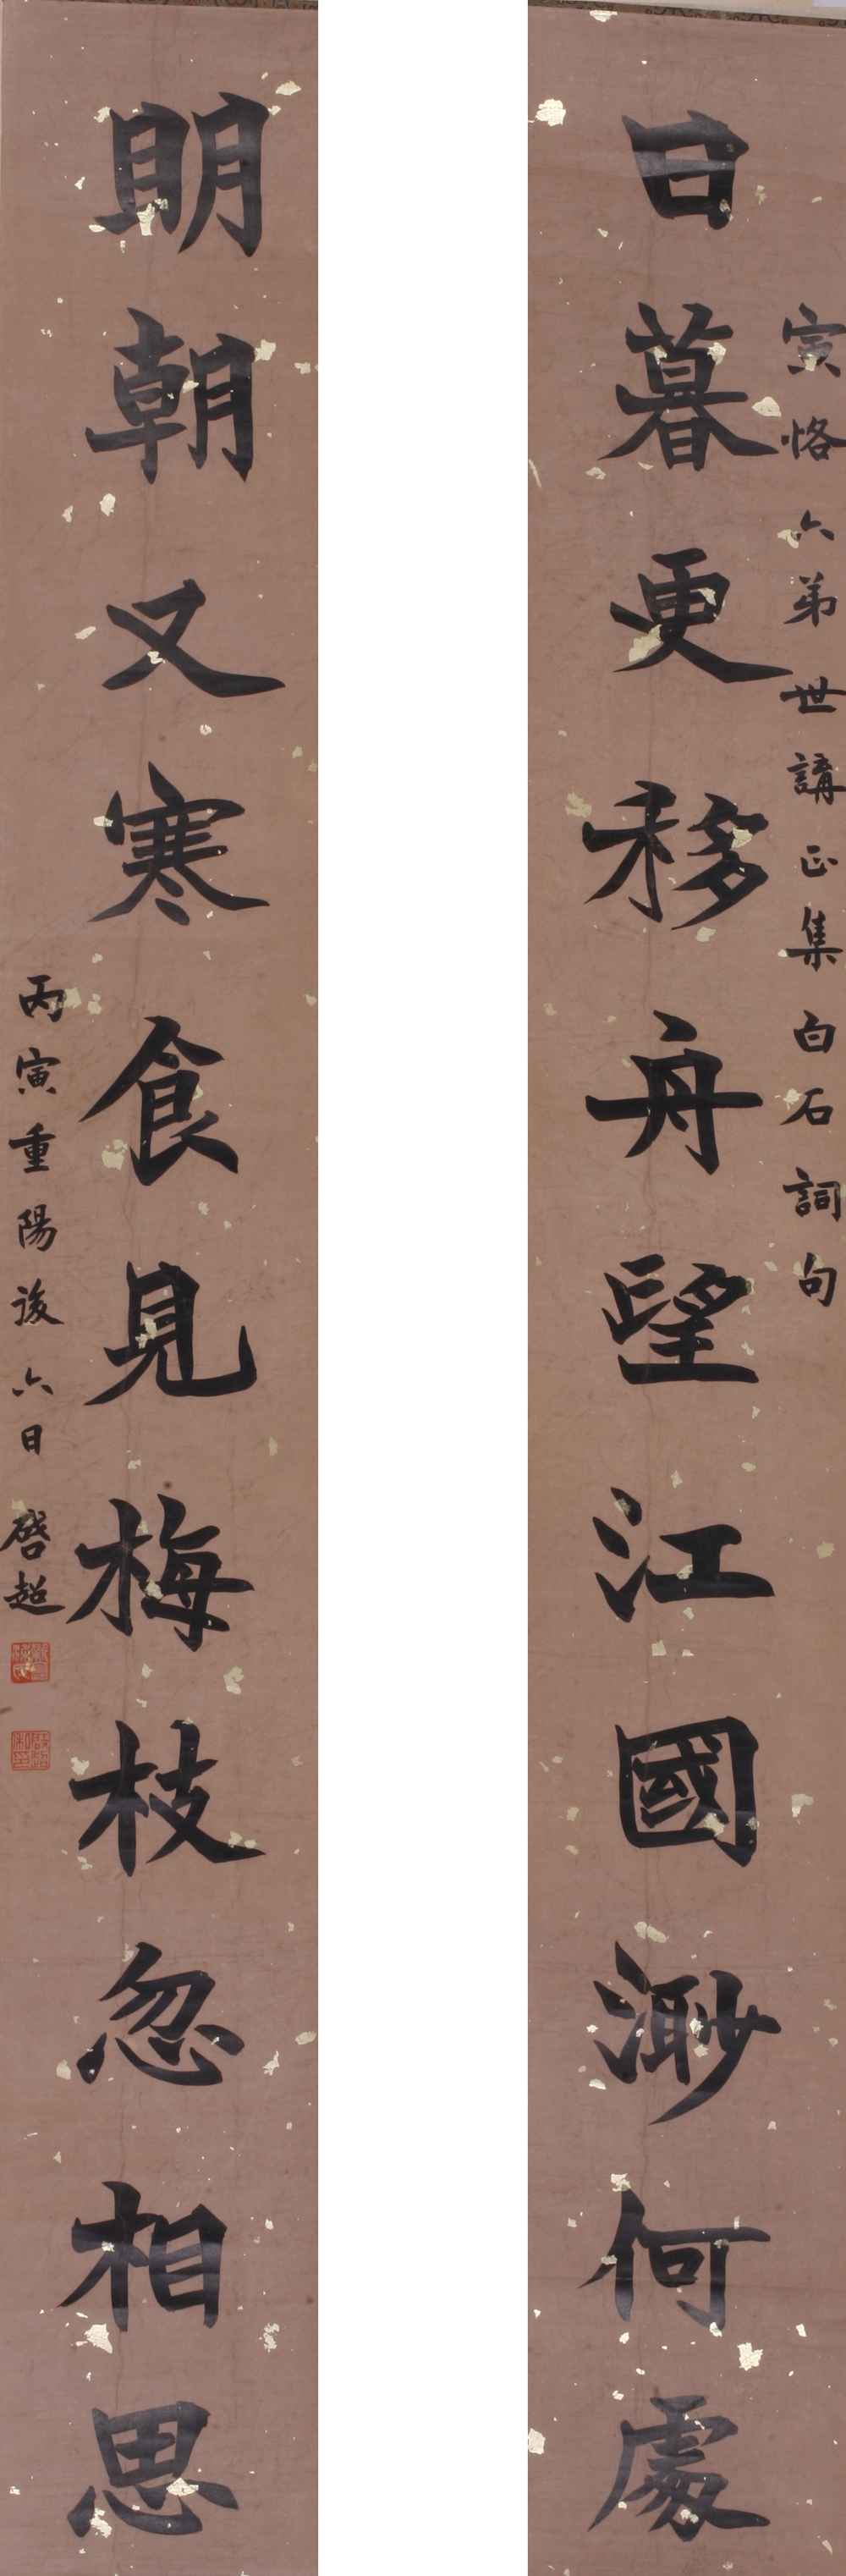 寅恪六弟世講正集白石詞句
日暮更移舟望江國渺何處
明朝又寒食見梅枝忽相思
丙寅重陽後六日啓超